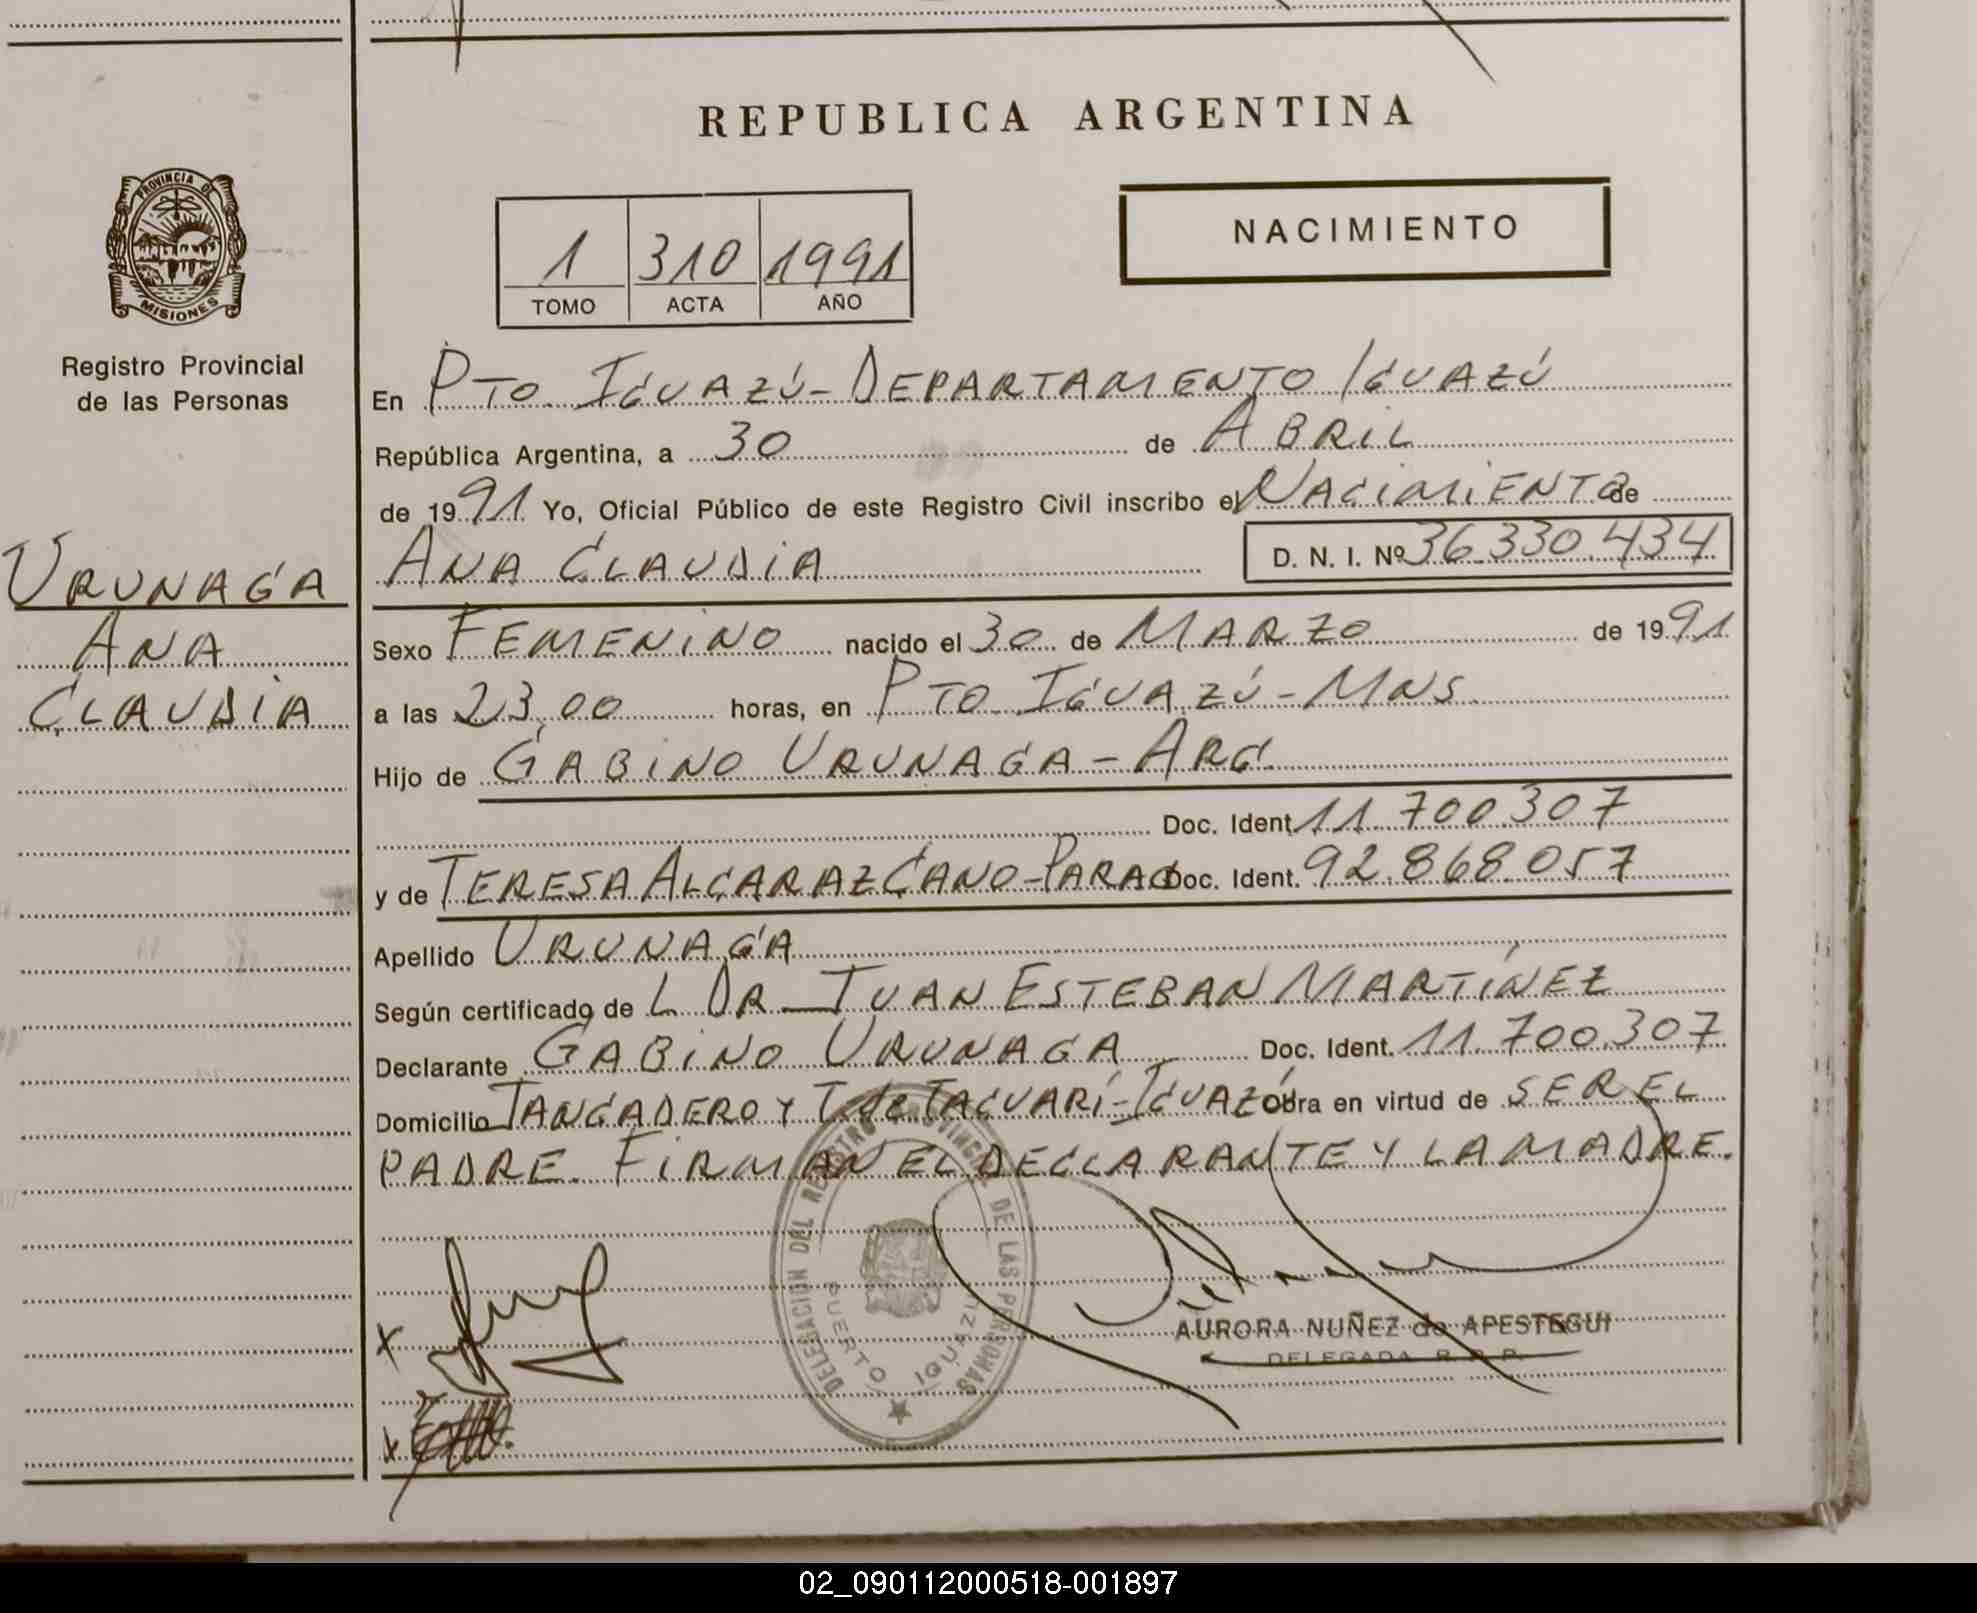 REPUBLICA ARGENTINA
NACIMIENTO
1 310 1991
TOMO ACTA AÑO
PROVINCIA DE
MISIONES
Registro Provincial
de las Personas
URUNAGA
ANA
CLAUDIA
En PTO. IGUAZÚ - DEPARTAMENTO IGUAZÚ
República Argentina, a 30 de ABRIL
de 1991 Yo, Oficial Público de este Registro Civil inscribo el NACIMIENTO de
ANA CLAUDIA D. N. I. Nº 36.330.434
Sexo FEMENINO nacido el 30 de MARZO de 1991
a las 23,00 horas, en PTO. IGUAZÚ - MNS.
Hijo de GABINO URUNAGA - ARG.
Doc. Ident. 11.700.307
y de TERESA ALCARAZ CANO - PARAG Doc. Ident. 92.868.057
Apellido URUNAGA
Según certificado de L DR JUAN ESTEBAN MARTÍNEZ
Declarante GABINO URUNAGA Doc. Ident. 11.700.307
Domicilio TANGADERO Y T. de TACUARÍ - IGUAZÚ Obra en virtud de SER EL
PADRE. FIRMAN EL DECLARANTE Y LA MADRE.
DELEGACION DEL REGISTRO PROVINCIAL DE LAS PERSONAS
PUERTO IGUAZU
AURORA NUÑEZ de APESTEGUI
DELEGADA R. P. P.
02_090112000518-001897